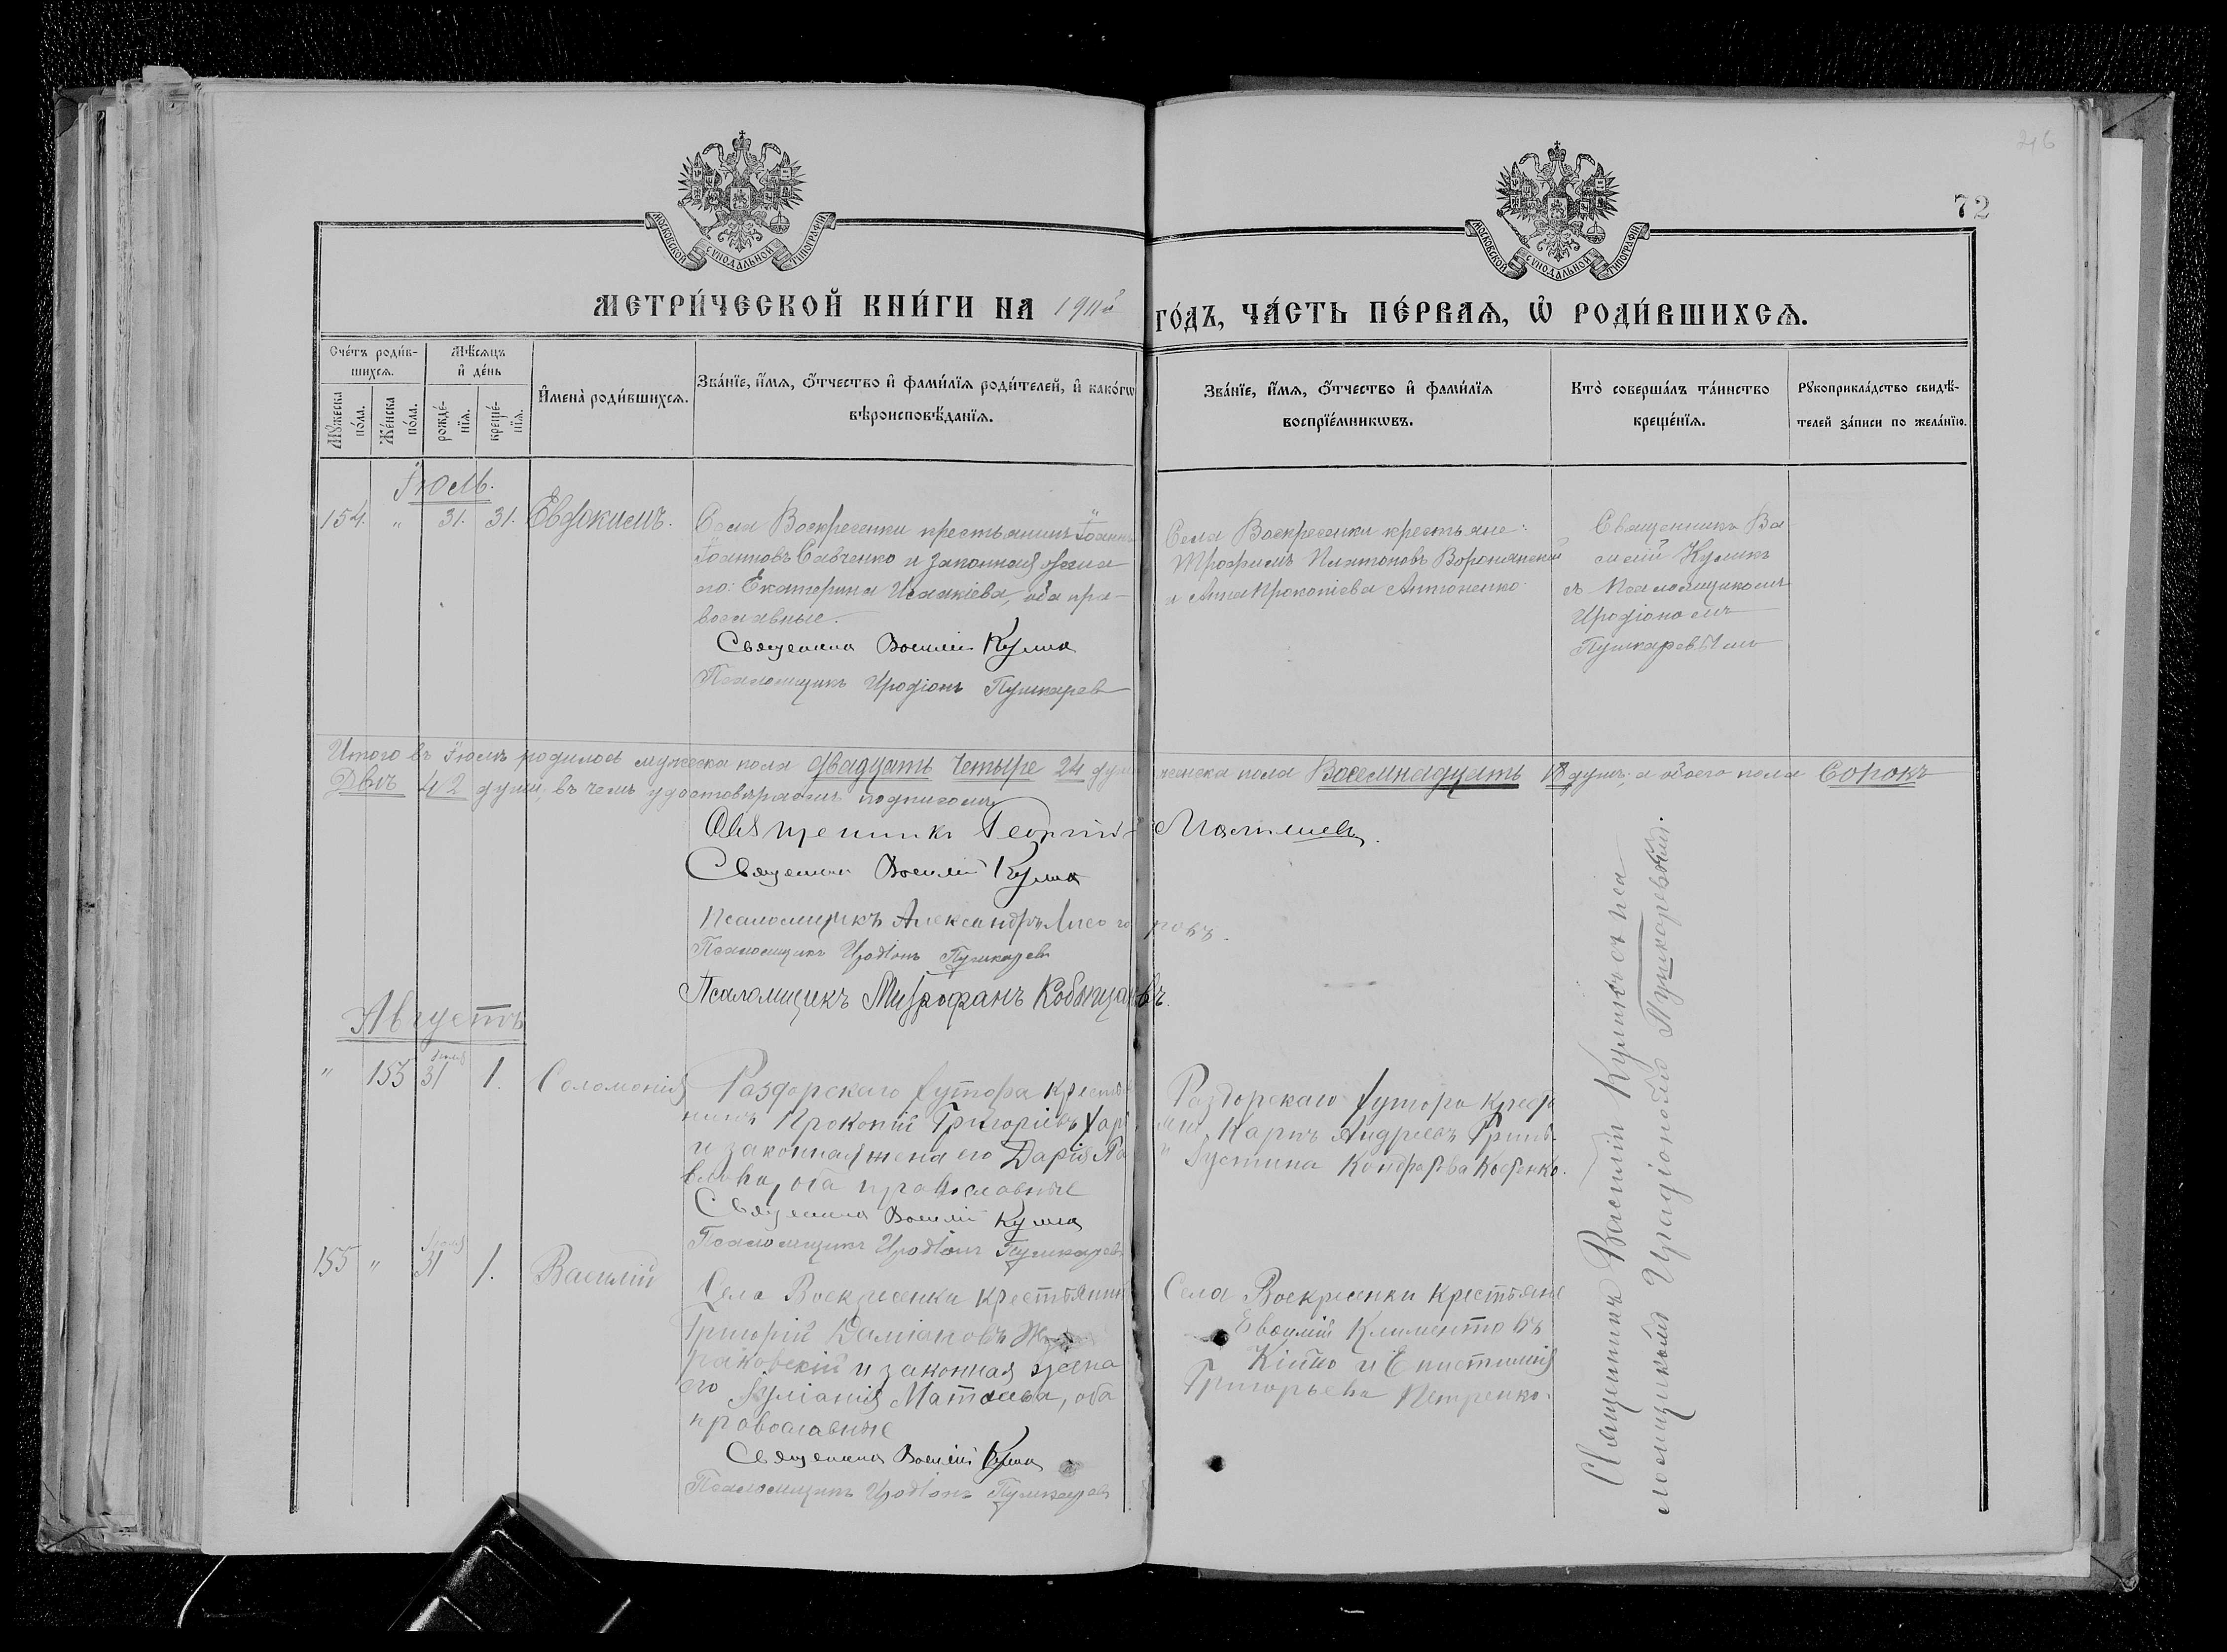 216
72
МОСКОВСКОЙ СУНОДАЛЬНОЙ ТИПОГРАФІИ
МОСКОВСКОЙ СУНОДАЛЬНОЙ ТИПОГРАФІИ
МЕТРИ́ЧЕСКОЙ КНИ́ГИ НА 1911й ГО́ДЪ, ЧА́СТЬ ПЕ́РВАѦ, Ѡ҆ РОДИ́ВШИХСѦ.
Сче́тъ роди́в-
шихсѧ.
Мѣ́сѧцъ
и҆ де́нь
Мꙋ́жеска
по́ла.
Же́нска
по́ла.
рожде́-
нїѧ.
креще́-
нїѧ.
И҆мена̀ роди́вшихсѧ.
Зва́нїе, и҆́мѧ, ѻ҆́тчество и҆ фами́лїѧ роди́телей, и҆ како́гѡ
вѣроисповѣ́данїѧ.
Зва́нїе, и҆́мѧ, ѻ҆́тчество и҆ фами́лїѧ
воспрїе́мникѡвъ.
Кто̀ соверша́лъ та́инство
креще́нїѧ.
Рꙋкоприкла́дство свидѣ́-
телей за́писи по жела́нїю.
Іюль.
154. " 31. 31. Евдокимъ.
Села Воскресенки крестьянинъ Іоаннъ
Іоанновъ Савченко и законная жена
его: Екатерина Исаакіева, оба пра-
вославные.
Священникъ Василій Кулик
Псаломщикъ Иродіонъ Пушкарев
Села Воскресенки крестьяне:
Трофимъ Платоновъ Воронянскій
и Анна Прокопіева Антоненко
Священникъ Ва-
силій Куликъ
съ Псаломщикомъ
Иродіономъ
Пушкаревымъ
Итого въ Іюлѣ родилось мужеска пола двадцать четыре 24 душ женска пола Восемнадцать 18 душъ, а обоего пола Сорокъ
Двѣ 42 души, въ чемъ удостовѣряемъ подписомъ
Священникъ Георгій
Священник Василій Кулик
Псаломщикъ Александръ
Псаломщикъ Иродіонъ Пушкарев
Псаломщикъ Митрофанъ
Августъ
" 155 Іюля 31 1. Соломонія
Раздорскаго хутора крестья
нинъ Прокопій Григоріевъ
и законная жена его Дарія Па
влова, оба православные
Священник Василій Кулик
Псаломщикъ Иродіонъ Пушкарев
Раздорскаго хутора кресть
яне Карпъ Андреевъ
и Іустина Кондратова Костенко.
155 " Іюля 31 1. Василій
Села Воскресенки крестьянин
Григорій Даміановъ
и законная жена
его Іуліанія Матвѣева, оба
православные
Священник Василій Кулик
Псаломщикъ Иродіонъ Пушкарев
Села Воскресенки крестьяне
Евсилій Климентовъ
и Епистимія
Григорьева Петренко.
Священникъ Василій Куликъ съ пса
ломщикомъ Иродіономъ Пушкаревымъ.